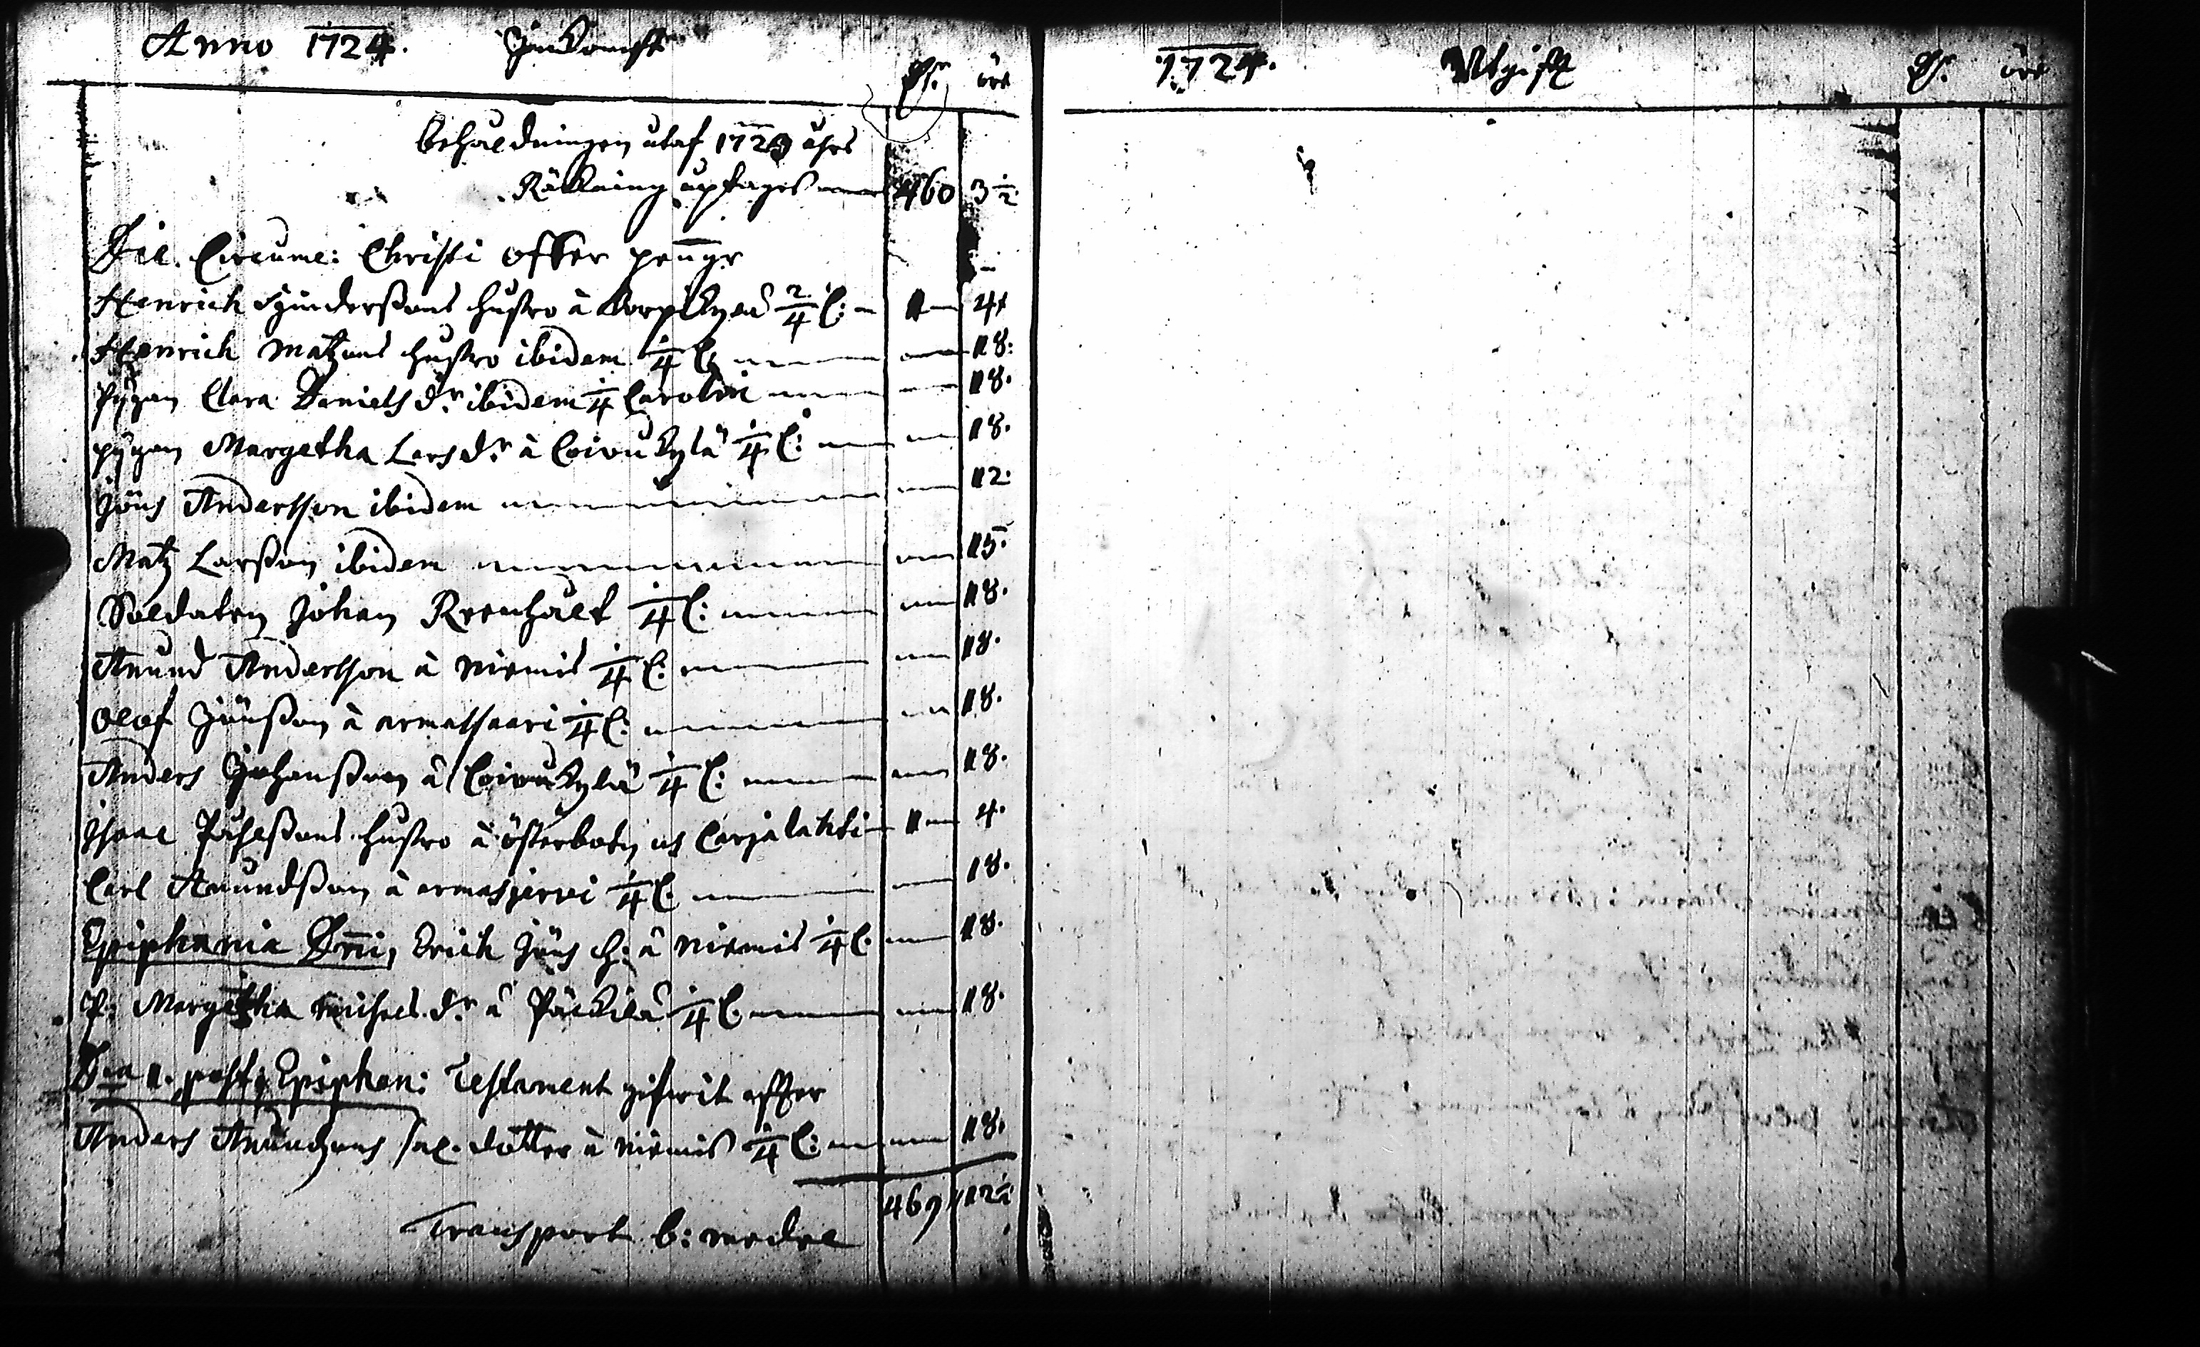 Anno 1724. Inkombst Dr. öre
behåldningen utaf 1723 åhrs
Räkning uptages 460 3 1/2
Die. Circumc: Christi offer pengr
Henrich hustro à Korpikylä 2/4 C: 1 4
Henrich Matzons hustro ibidem 1/4 C: 18:
Pigan Clara Daniels dr. ibidem 1/4 Carolin 18.
pigan Margetha Lars dr. à Coivukylä 1/4 C: 18.
Jöns Andersson ibidem 12:
Matz Larßon ibidem 15.
Soldaten Johan Reenhult 1/4 C: 18.
Anund Andersson à Niemis 1/4 C: 18.
Olof Jönßon à armassaari 1/4 C: 18.
Anders Johanßon à Coivukylä 1/4 C: 18.
Isaac Påhlßons hustro à österbotn us Carjalahti 1 4.
Carl Anundßon à armasjervi 1/4 C. 18.
Epiphania Dni, Erich Jöns h: à Niemis 1/4 C. 18.
P: Margetha Michels dr. à Päckilä 1/4 C. 18.
Dca 1. post Epiphan: Testament gifwit effter
Anders Anundzons sal. dotter à Niemis 1/4 C: 18.
469 12 1/2
Transport b: wedre
1724. Utgift Dr. öre